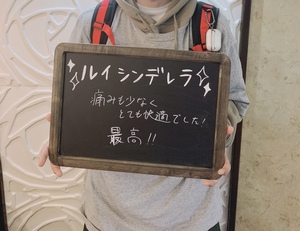 ルイシンデレラ
痛みも少なく
とても快適でした!
最高!!